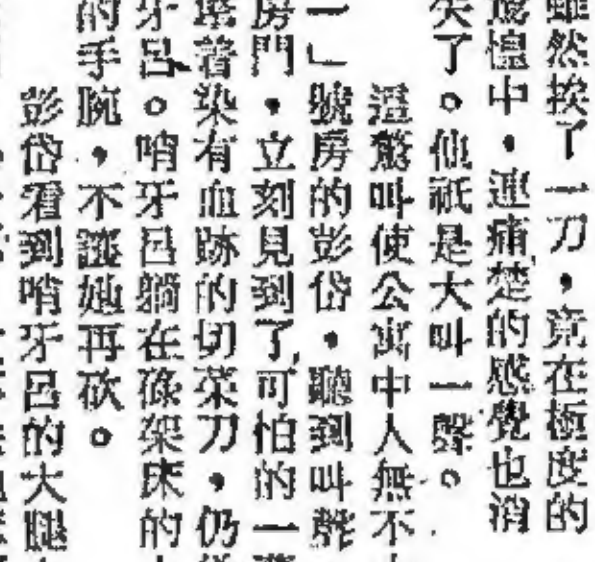 雖然挨了一刀，竟在極度的
惶中，連痛楚的感覺也消
失了。他祇是大叫一聲。
這驚叫使公寓中人無不
一」號房的彭岱，聽到叫聲
房門，立刻見到了可怕的一
着染有血跡的切菜刀，仍
牙呂。哨牙呂躺在碌架床的
的手腕，不讓她再砍。
彭岱看到哨牙呂的大腿